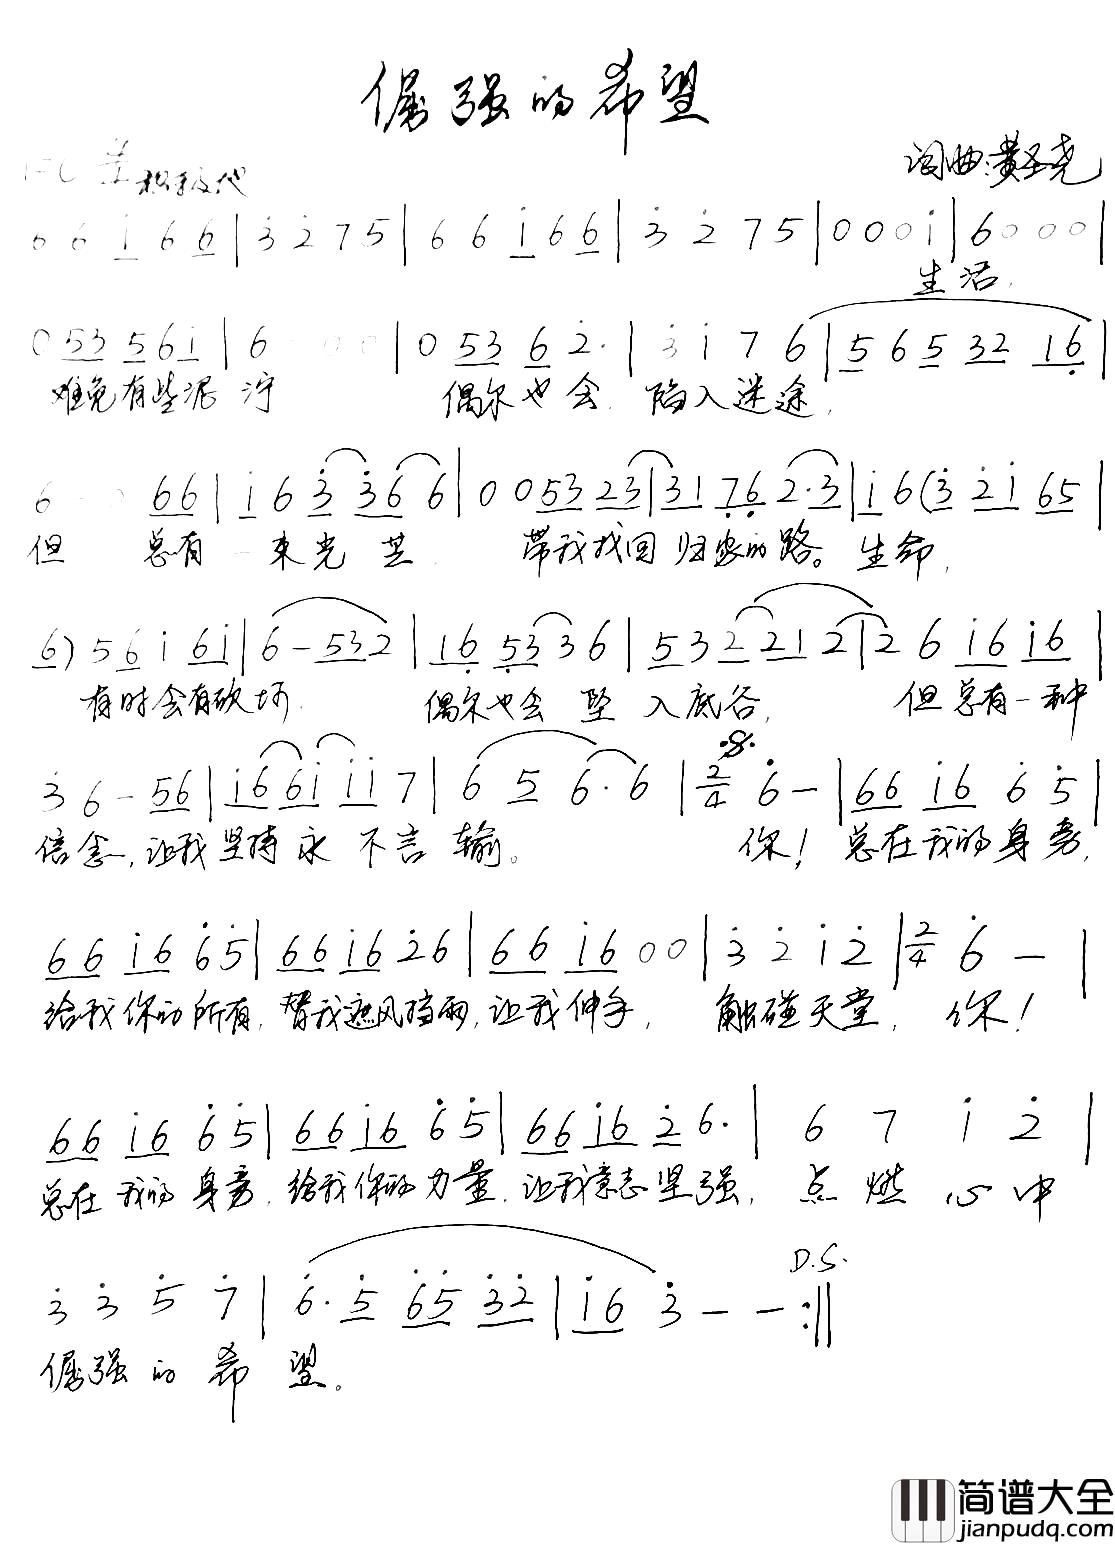 倔强的希望
词曲:黄圣尧
1=C 4/4
6 6 i 6 6 | 3 2 7 5 | 6 6 i 6 6 | 3 2 7 5 | 0 0 0 i | 6 0 0 0 |
生活,
0 53 5 6 i | 6 0 0 | 0 53 6 2· | 3 i 7 6 | 5 6 5 32 16 |
难免有些泥泞 偶尔也会 陷入迷途,
6 0 66 | i 6 3 36 6 | 0 0 53 23 | 31 76 2·3 | i 6 (3 2i 65 |
但 总有一束光芒 带我找回归家的路。生命,
6) 5 6 i 6i | 6 - 532 | 16 53 3 6 | 53 2 21 2 | 2 6 i6 i6 |
有时会有砍坷 偶尔也会 坠入底谷, 但总有一种
3 6 - 56 | i6 6i ii 7 | 6 5 6·6 | 2/4 6 - | 66 i6 6 5 |
信念,让我坚持永不言输。 你!总在我的身旁,
66 i6 65 | 66 i6 26 | 66 i6 00 | 3 2 i 2 | 2/4 6 - |
给我你的所有,替我遮风挡雨,让我伸手, 触碰天堂, 你!
66 i6 65 | 66 i6 65 | 66 i6 2 6· | 6 7 i 2 |
总在我的身旁,给我你的力量,让我意志坚强, 点燃心中
D.S.
3 3 5 7 | 6· 5 65 32 | i6 3 - - :||
倔强的希望。
简谱大全
jianpudq.com